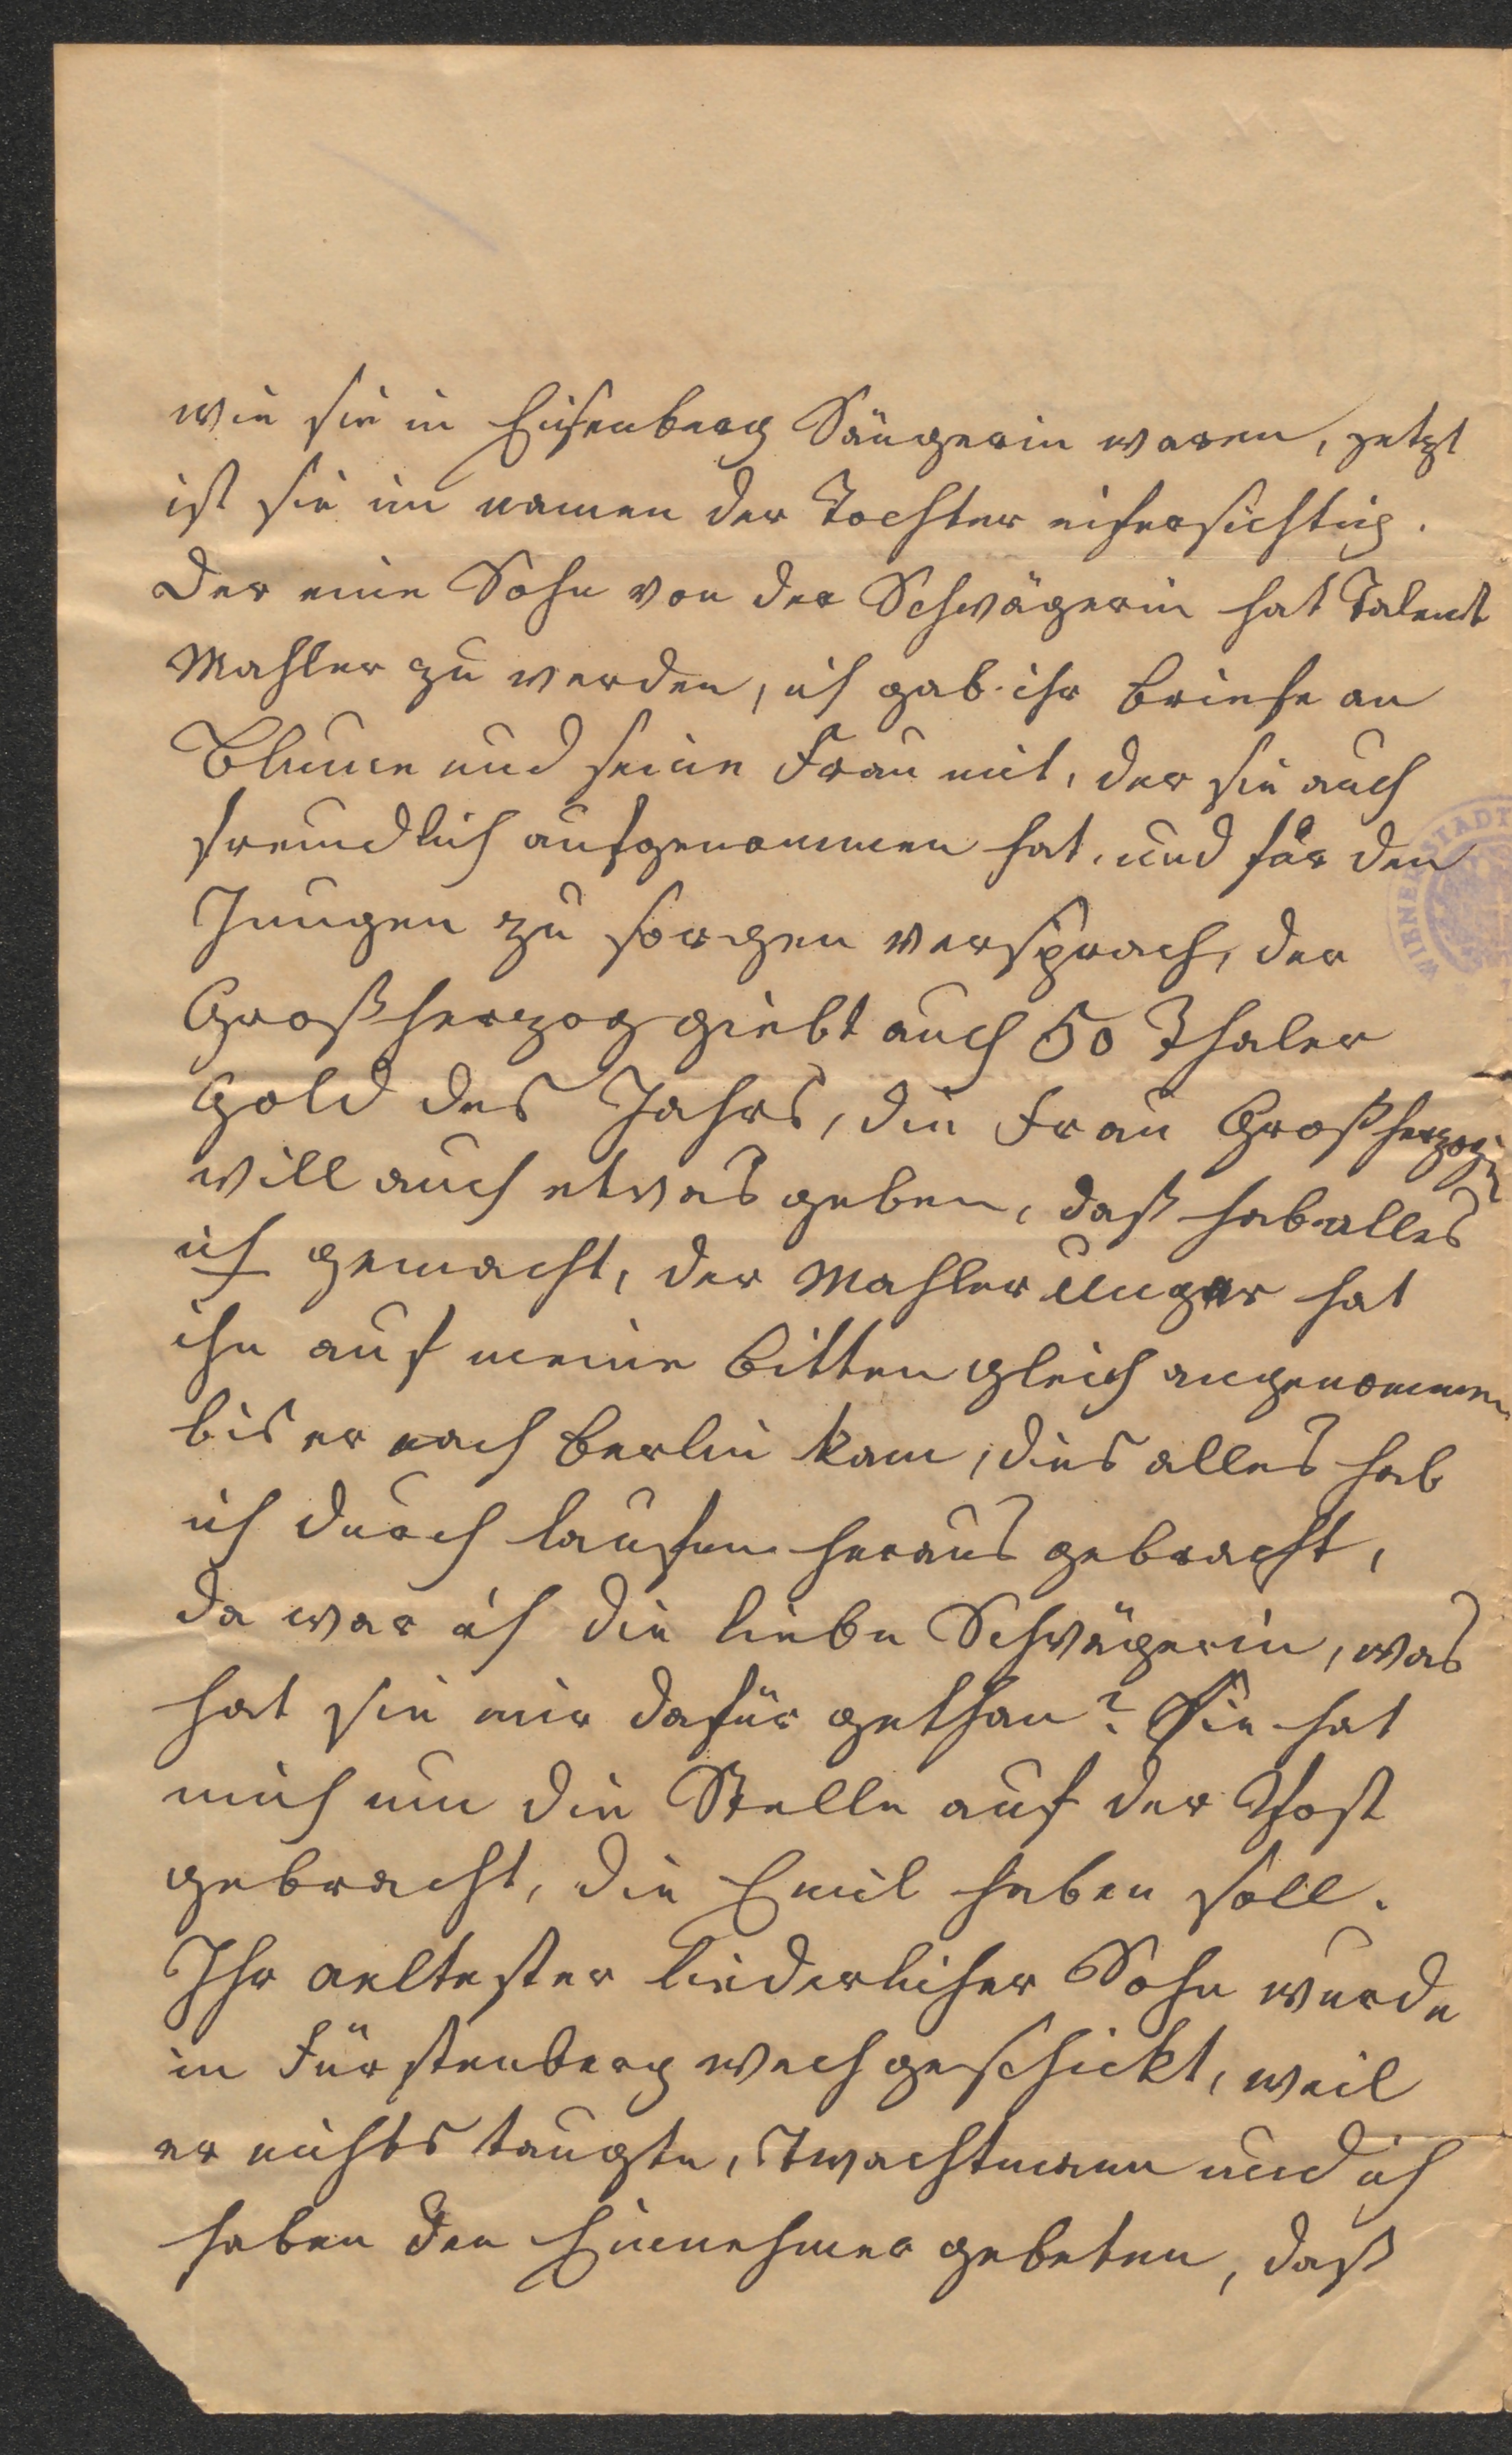 wie sie in Eisenberg Sängerin waren, jetzt
ist sie im namen der Tochter eifersichtig.
Der eine Sohn von der Schwägerin hat Talent
Mahler zu werden, ich gab ihr Briefe an
Blume und seine Frau mit, der sie auch
freundlich aufgenommen hat, und für den
Jungen zu sorgen versprach, der
Großherzog giebt auch 50 Thaler
Gold des Jahrs, die Frau Großherzogin
will auch etwas geben, daß hab alles
ich gemacht, der Mahler Unger hat
ihn auf meine Bitten gleich angenommen
bis er nach Berlin kam, dies alles hab
ich durch laufen heraus gebracht,
da war ich die liebe Schwägerin, was
hat sie mir dafür gethan? Sie hat
mich um die Stelle auf der Post
gebracht, die Emil haben soll.
Ihr aeltester liederlicher Sohn wurde
in Fürstenberg wech geschickt, weil
er nichts taugte, Twachtmann und ich
haben den Einnehmer gebeten, daß
WIENER STADT